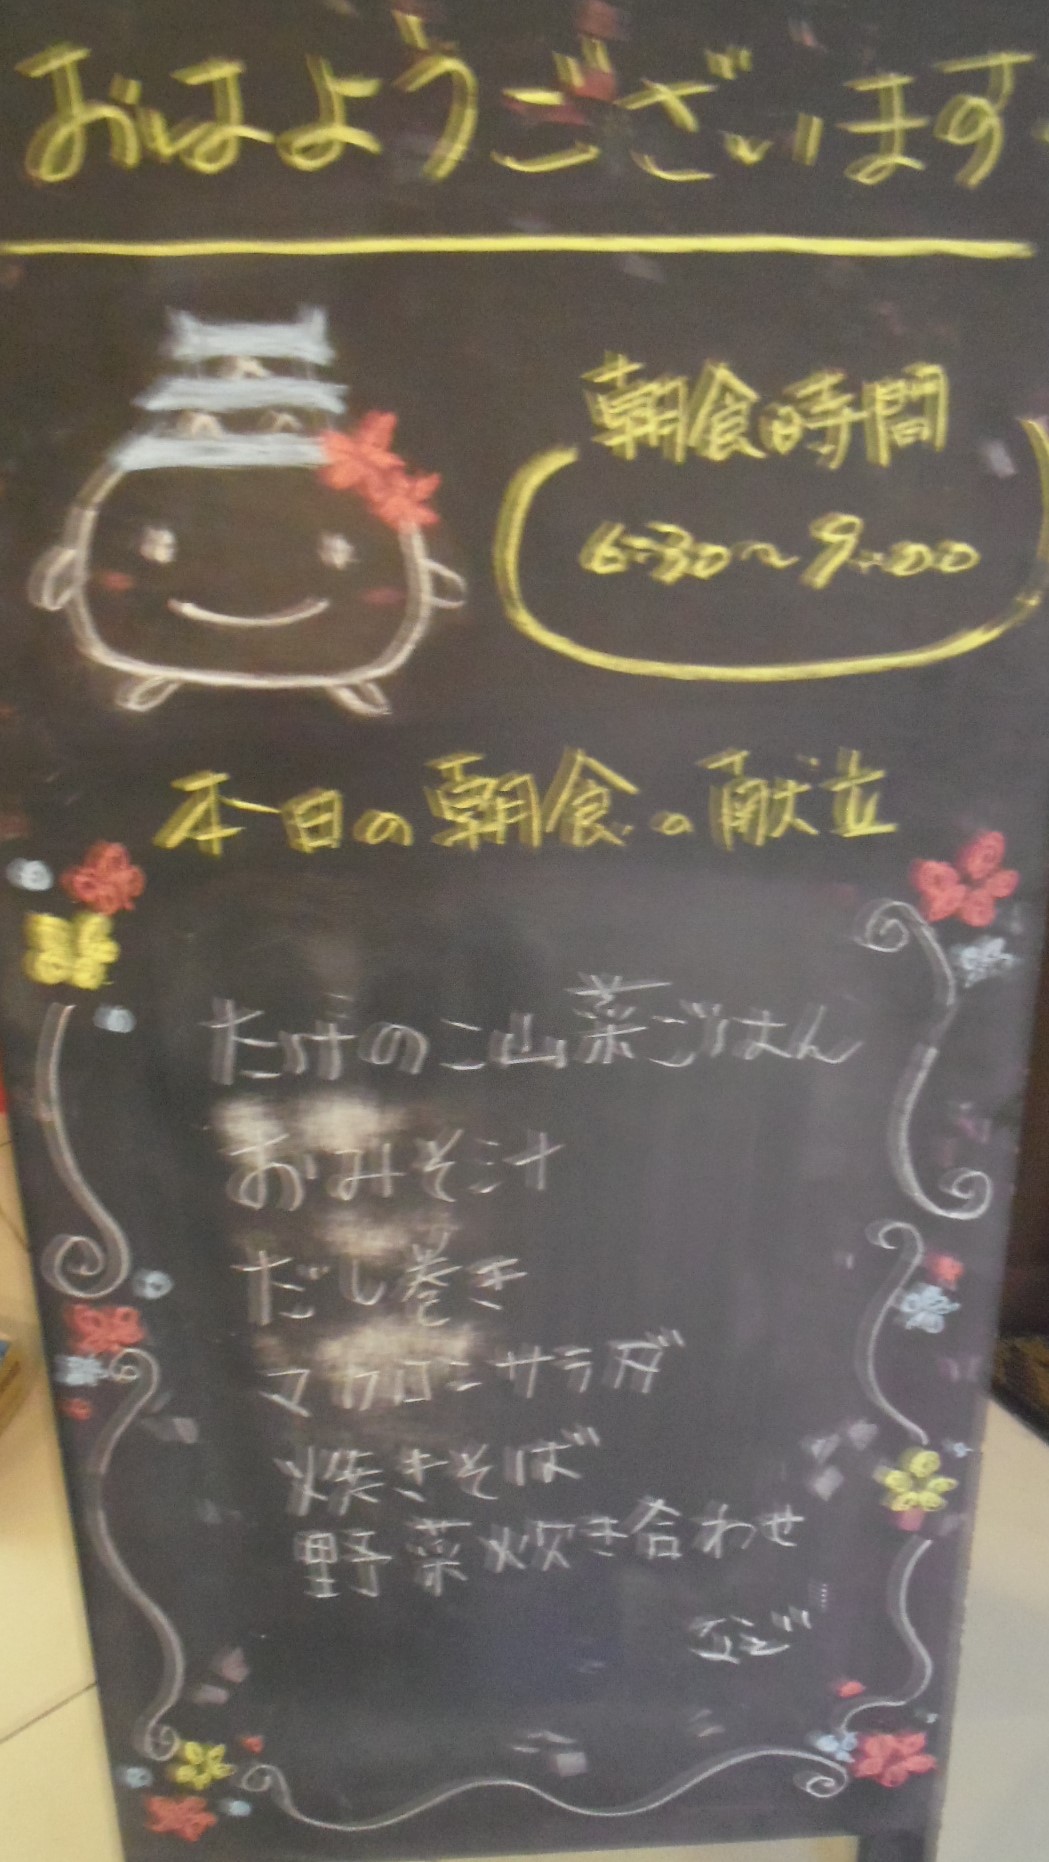 おはようございます
朝食時間
6:30〜9:00
本日の朝食の献立
たけのこ山菜ごはん
おみそ汁
だし巻き
マカロニサラダ
焼きそば
野菜炊き合わせ
など